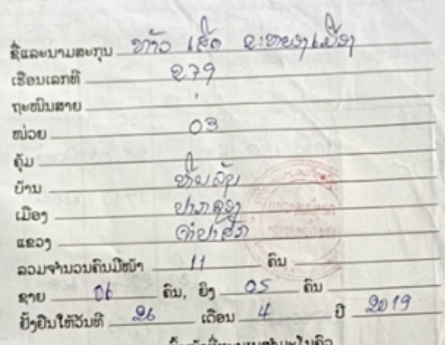 ຊື່ແລະນາມສະກຸນ ທ້າວ ເສັດ
ເຮືອນເລກທີ 279
ຖະໜົນສາຍ
ໜ່ວຍ 03
ຄຸ້ມ
ບ້ານ
ເມືອງ ປາກຊ່ອງ
ແຂວງ ຈຳປາສັກ
ລວມຈຳນວນຄົນມີໜ້າ 11 ຄົນ
ຊາຍ 06 ຄົນ, ຍິງ 05 ຄົນ
ຢັ້ງຢືນໃຫ້ວັນທີ 26 ເດືອນ 4 ປີ 2019